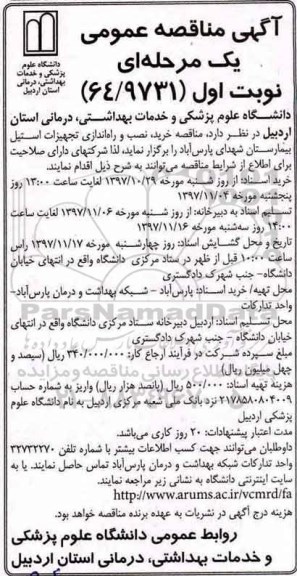 آگهی مناقصه عمومی
یک مرحله‌ای
نوبت اول (۶۴/۹۷۳۱)
دانشگاه علوم
پزشکی و خدمات
بهداشتی، درمانی
استان اردبیل
دانشگاه علوم پزشکی و خدمات بهداشتی، درمانی استان
اردبیل در نظر دارد، مناقصه خرید، نصب و راه‌اندازی تجهیزات استیل
بیمارستان شهدای پارس‌آباد را برگزار نماید، لذا شرکتهای دارای صلاحیت
برای اطلاع از شرایط مناقصه می‌توانند به شرح ذیل اقدام نمایند.
خرید اسناد: از روز شنبه مورخه ۱۳۹۷/۱۰/۲۹ لغایت ساعت ۱۳:۰۰ روز
پنجشنبه مورخه ۱۳۹۷/۱۱/۰۴
تسلیم اسناد به دبیرخانه: از روز شنبه مورخه ۱۳۹۷/۱۱/۰۶ لغایت ساعت
۱۴:۰۰ روز سه‌شنبه مورخه ۱۳۹۷/۱۱/۱۶
تاریخ و محل گشایش اسناد: روز چهارشنبه مورخه ۱۳۹۷/۱۱/۱۷ راس
ساعت ۱۰:۰۰ قبل از ظهر در ستاد مرکزی دانشگاه واقع در انتهای خیابان
دانشگاه- جنب شهرک دادگستری
محل تهیه/ خرید اسناد: پارس‌آباد – شبکه بهداشت و درمان پارس‌آباد-
واحد تدارکات
محل تسلیم اسناد: اردبیل دبیرخانه ستاد مرکزی دانشگاه واقع در انتهای
خیابان دانشگاه – جنب شهرک دادگستری
مبلغ سپرده شرکت در فرآیند ارجاع کار: ۳۴۰/۰۰۰/۰۰۰ ریال (سیصد و
چهل میلیون ریال)
هزینه تهیه اسناد: ۵۰۰/۰۰۰ ریال (پانصد هزار ریال) واریز به شماره حساب
۲۱۷۸۵۸۰۸۰۴۰۰۹ نزد بانک ملی شعبه مرکزی اردبیل به نام دانشگاه علوم
پزشکی اردبیل
مدت اعتبار پیشنهادات: ۲۰ روز کاری می‌باشد.
داوطلبان می‌توانند جهت کسب اطلاعات بیشتر با شماره تلفن ۳۲۷۳۲۲۷۰
واحد تدارکات شبکه بهداشت و درمان پارس‌آباد تماس حاصل نمایند. یا به
سایت اینترنتی دانشگاه به نشانی زیر مراجعه نمایند.
http://www.arums.ac.ir/vcmrd/fa
هزینه درج آگهی در نشریات به عهده برنده مناقصه خواهد بود.
روابط عمومی دانشگاه علوم پزشکی
و خدمات بهداشتی، درمانی استان اردبیل